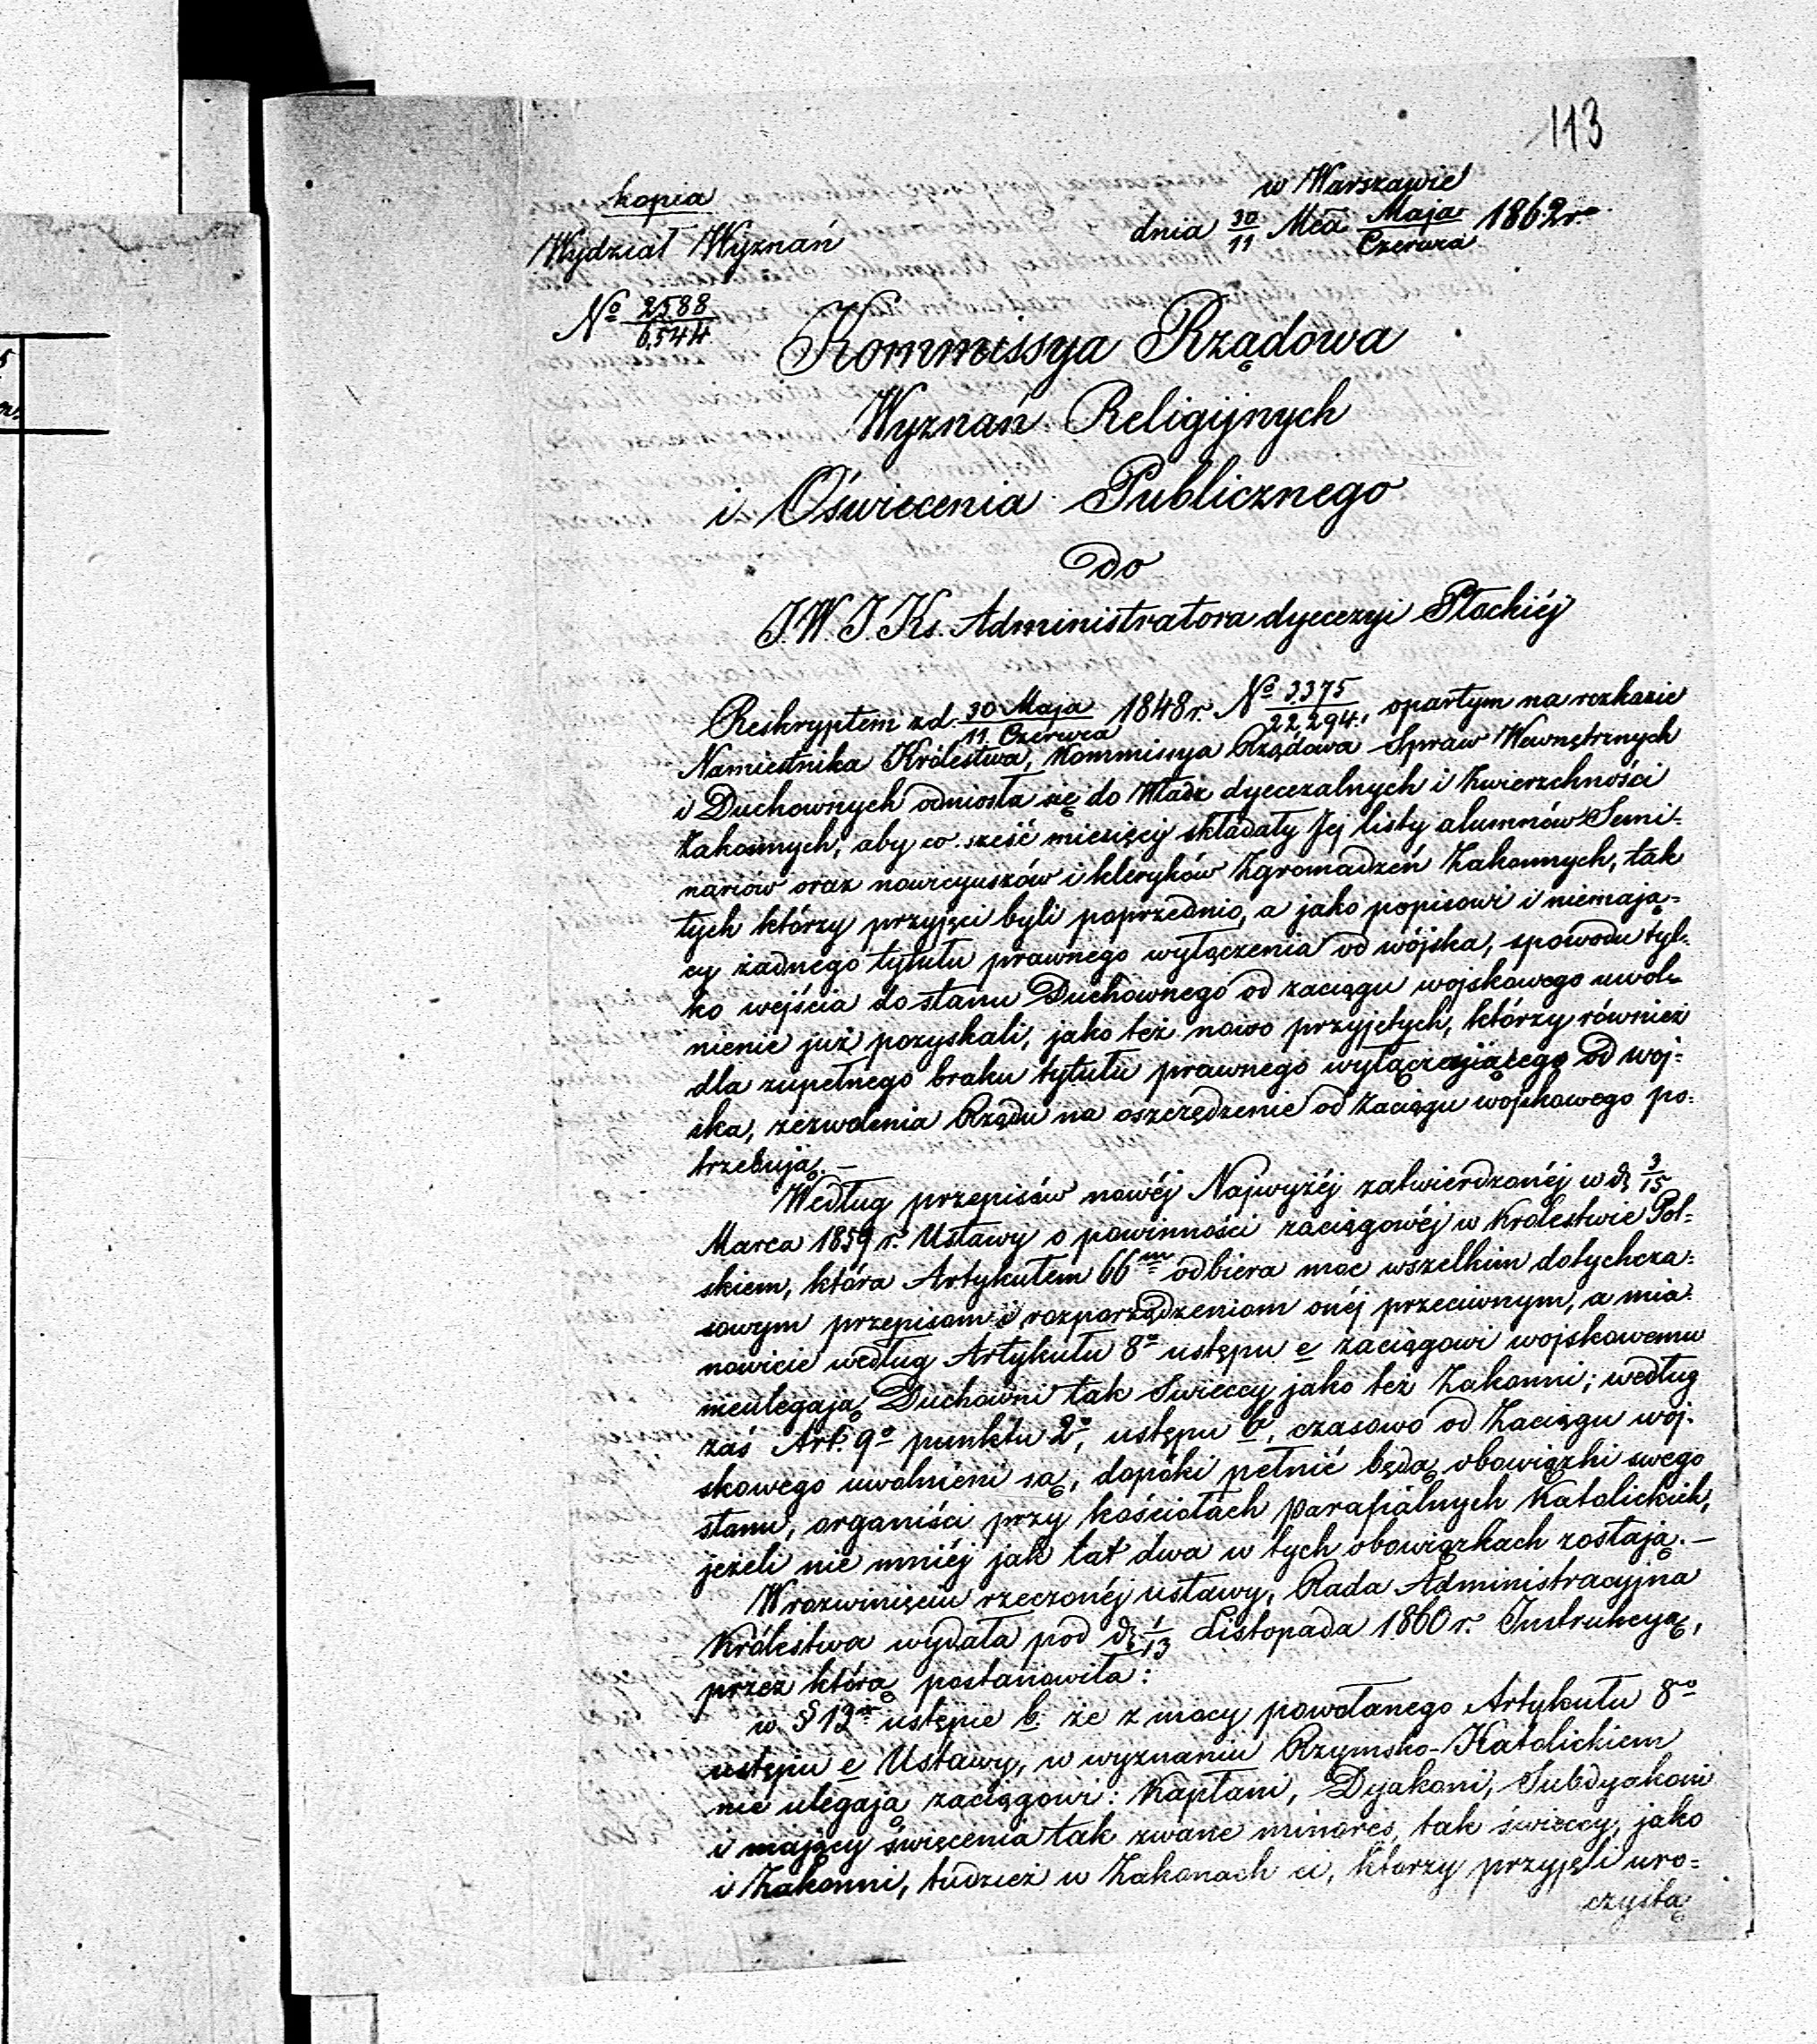 113
kopia
w Warszawie
Wydział Wyznań
dnia 30/11 Mca Maja/Czerwca 1862 r.
No 2588/6544
Kommissya Rządowa
Wyznań Religijnych
i Oświecenia Publicznego
Do
J.W.J.Ks. Administratora dyecezyi Płockiéj
Reskryptem z d. 30 Maja/11 Czerwca 1848 r. No 3375/22,294, opartym na rozkazie
Namiestnika Królestwa, Kommissya Rządowa Spraw Wewnętrznych
i Duchownych odniosła się do Władz dyecezalnych i Zwierzchności
Zakonnych, aby co sześć miesięcy składały Jej listy alumnów Semi-
nariów oraz nowicyuszów i kleryków Zgromadzeń Zakonnych, tak
tych którzy przyjęci byli poprzednio, a jako popisowi i niemają-
cy żadnego tytułu prawnego wyłączenia od wójska, spowodu tyl-
ko wejścia do stanu Duchownego od zaciągu wojskowego uwol-
nienie już pozyskali, jako też nowo przyjętych, którzy również
dla zupełnego braku tytułu prawnego wyłączającego od woj-
ska, zezwolenia Rządu na oszczędzenie od Zaciągu wojskowego po-
trzebują. —
Według przepisów nowéj Najwyżéj zatwierdzonéj w d. 3/15
Marca 1859 r. Ustawy o powinności zaciągowéj w Królestwie Pol-
skiem, która Artykułem 66m odbiera moc wszelkim dotychcza-
sowym przepisom i rozporządzeniom onéj przeciwnym, a mia-
nowicie według Artykułu 8o ustępu e zaciągowi wojskowemu
nieulegają Duchowni tak Swieccy jako też Zakonni; według
zaś Art. 9o punktu 2o, ustępu b, czasowo od Zaciągu woj-
skowego uwolnieni są, dopóki pełnić będą obowiązki swego
stanu, organiści przy kościołach parafialnych Katolickich,
jeżeli nie mniéj jak lat dwa w tych obowiązkach zostają. —
W rozwinięciu rzeczonéj ustawy, Rada Administracyjna
Królestwa wydała pod d. 1/13 Listopada 1860 r. Instrukcyą,
przez którą postanowiła:
w § 12m ustępie b. że z mocy powołanego Artykułu 8o
ustępu e Ustawy, w wyznaniu Rzymsko-Katolickiem
nie ulegają zaciągowi: Kapłani, Dyakoni, Subdyakoni
i mający święcenia tak zwane minores, tak świeccy, jako
i Zakonni, tudzież w Zakonach ci, którzy przyjęli uro-
czystą